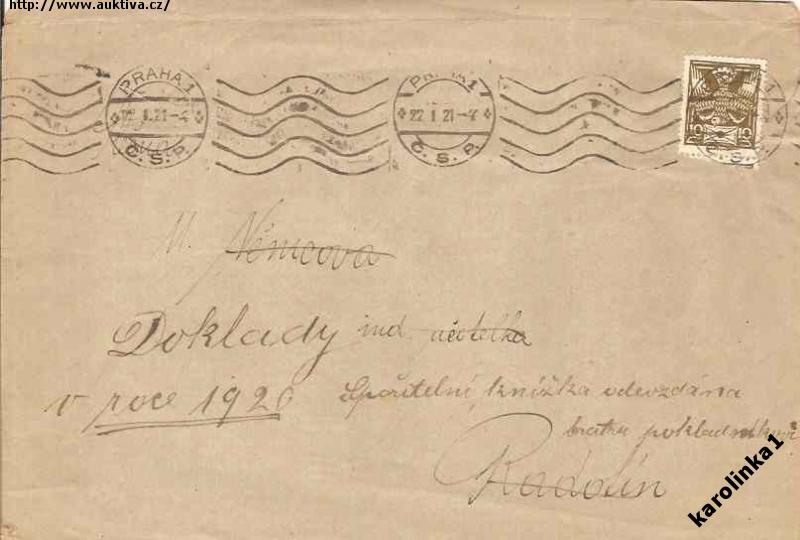 http://www.auktiva.cz/
PRAHA 1
22. I. 21 - 4
Č. S. P.
PRAHA 1
22 I 21 - 4
Č. S. P.
15 15
M. Němcova
Doklady ind. učitelka
v roce 1920
Spořitelní knížka odevzdána
bratru pokladníkovi
Radotín
karolinka1